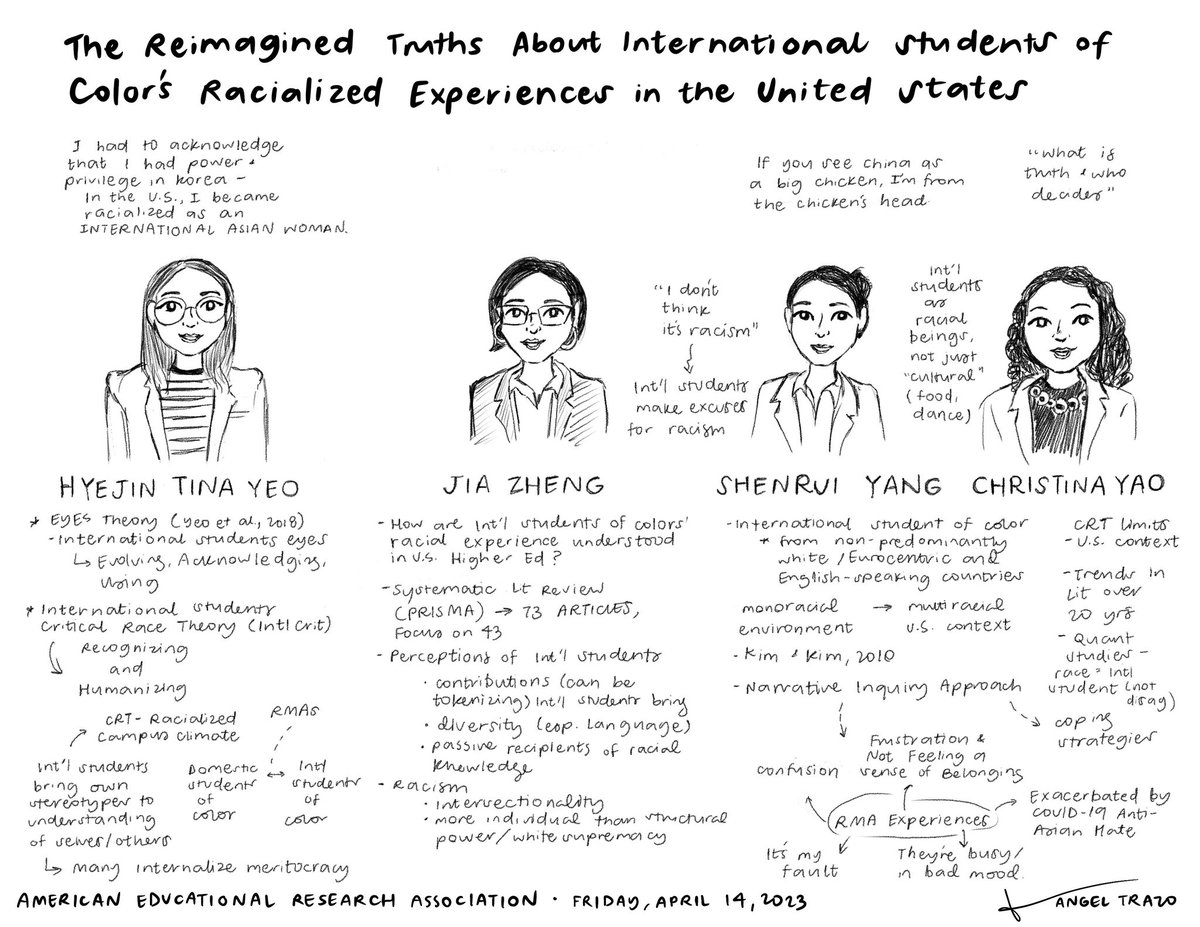 The Reimagined Truths About International Students of
Color's Racialized Experiences in the United States
I had to acknowledge
that I had power &
privilege in Korea –
In the U.S., I became
racialized as an
INTERNATIONAL ASIAN WOMAN.
"I don't
think
it's racism"
Int'l students
make excuses
for racism
If you see China as
a big chicken, I'm from
the chicken's head
"What is
truth & who
decides"
Int'l
students
as
racial
beings,
not just
"cultural"
(food,
dance)
HYEJIN TINA YEO
* EYES Theory (Yeo et al., 2018)
- International students eyes
↳ Evolving, Acknowledging,
Using
* International Students
Critical Race Theory (Intl Crit)
Recognizing
and
Humanizing
CRT - Racialized
Campus Climate
RMAs
Int'l students
bring own
stereotypes to
understanding
of selves/others
Domestic
students
of
color
↔
Intl
students
of
color
↳ Many internalize meritocracy
JIA ZHENG
- How are Int'l students of colors'
racial experience understood
in U.S. Higher Ed?
- Systematic Lit Review
(PRISMA) → 73 ARTICLES,
Focus on 43
- Perceptions of Int'l students
• contributions (can be
tokenizing) Int'l students bring
• diversity (esp. language)
• passive recipients of racial
knowledge
- Racism
• Intersectionality
• more individual than structural
power/white supremacy
SHENRUI YANG
- International student of color
* from non-predominantly
white/Eurocentric and
English-speaking countries
monoracial → multiracial
environment U.S. context
- Kim & Kim, 2010
- Narrative Inquiry Approach
coping
strategies
Frustration &
Not Feeling a
sense of Belonging
confusion
RMA Experiences
Exacerbated by
COVID-19 Anti-
Asian Hate
It's my
fault
They're busy/
in bad mood.
CHRISTINA YAO
CRT limits
- U.S. context
- Trends in
Lit over
20 yrs
- Quant
studies –
race = Intl
student (not
disag)
AMERICAN EDUCATIONAL RESEARCH ASSOCIATION · FRIDAY, APRIL 14, 2023
ANGEL TRAZO